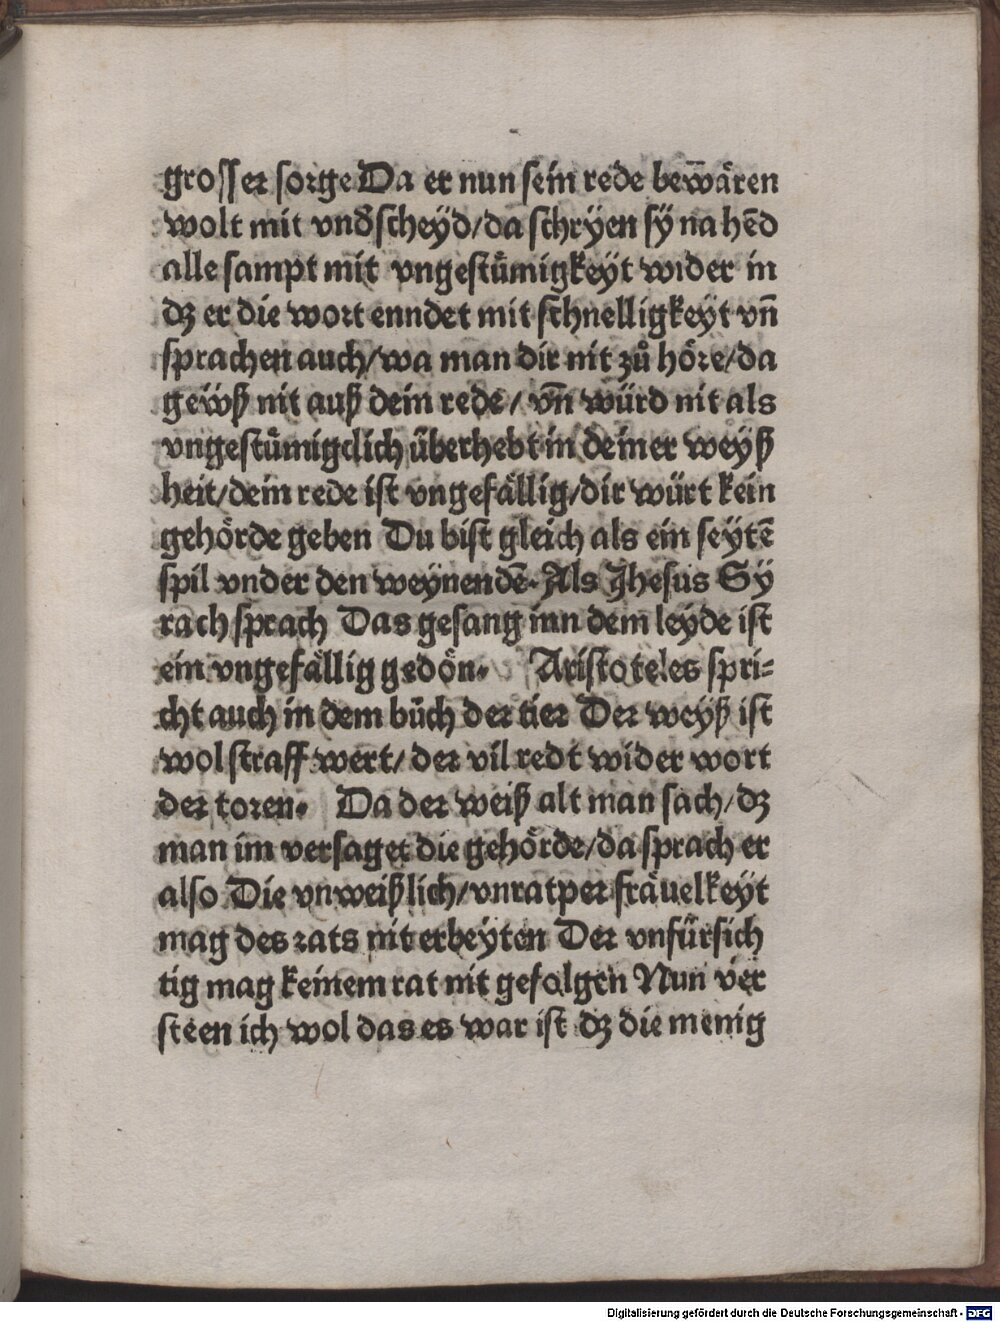 grosser sorge Da er nun sein rede bew̄åren
wolt mit vnd̕scheÿd/da schrÿen sÿ nahēd
alle sampt mit vngestůmigkeyt wider in
dʒ er die wort enndet mit schnelligkeyt vn̄
sprachen auch/wa man dir nit zů hőre/da
gewß nit auß dein rede/ vn̄ würd nit als
vngestůmigclich überhebt in deiner weyß
heit/dein rede ist vngefållig/dir würt kein
gehőrde geben Du bist gleich als ein seytē
spil vnder den weynendē. Als Jhesus Sÿ
rach sprach Das gesang inn dem leyde ist
ein vngefållig gedőn. Aristoteles spri⸗
cht auch in dem bůch der tier Der weyß ist
wol straff wert/ der vil redt wider wort
der toren. Da der weiß alt man sach/dʒ
man im versaget die gehőrde/da sprach er
also Die vnweißlich/vnratper fråuelkeyt
mag des rats nit erbeyten Der vnfürsich
tig mag keinem rat nit gefolgen Nun ver
steen ich wol das es war ist dʒ die menig
Digitalisierung gefördert durch die Deutsche Forschungsgemeinschaft - DFG